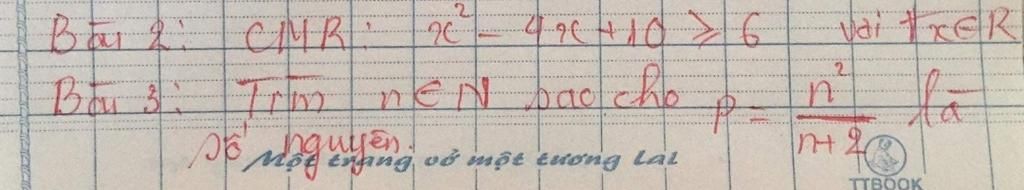 Bài 2: CMR: x² - 4x + 10 ≥ 6 với ∀x∈R
Bài 3: Tìm n∈N sao cho P = n²/(n+2) là
số nguyên.
Một trang vở một tương lai
TTBOOK